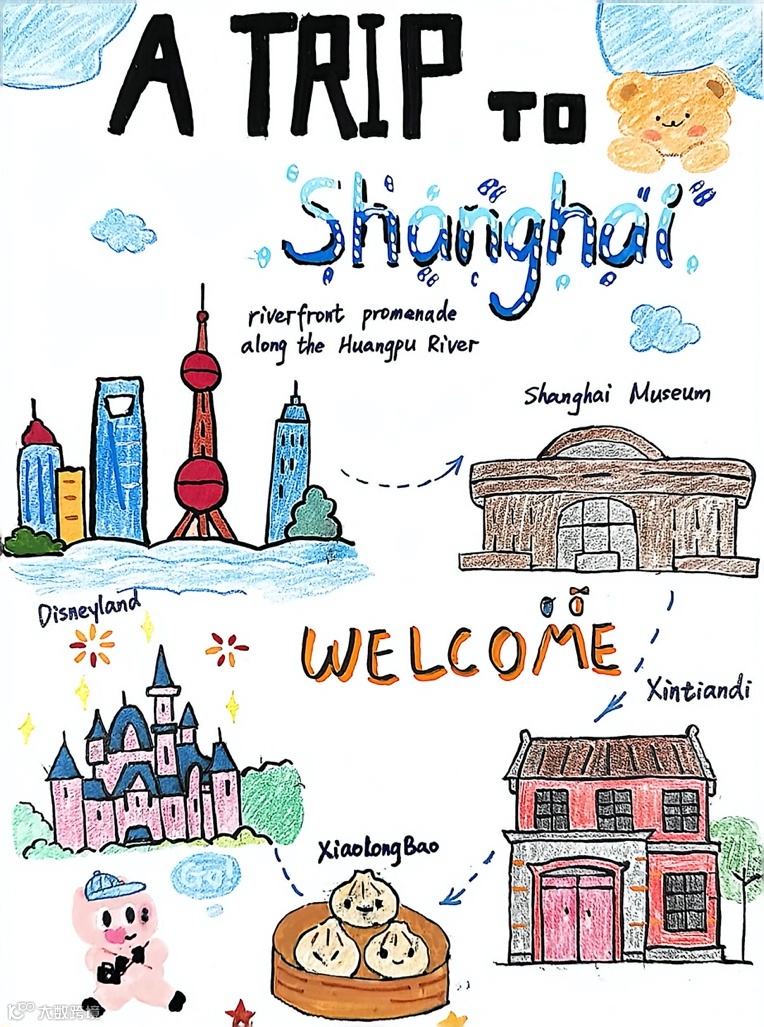 A TRIP TO
Shanghai
riverfront promenade
along the Huangpu River
Shanghai Museum
Disneyland
WELCOME
Xintiandi
XiaoLongBao
Go!
大数跨境